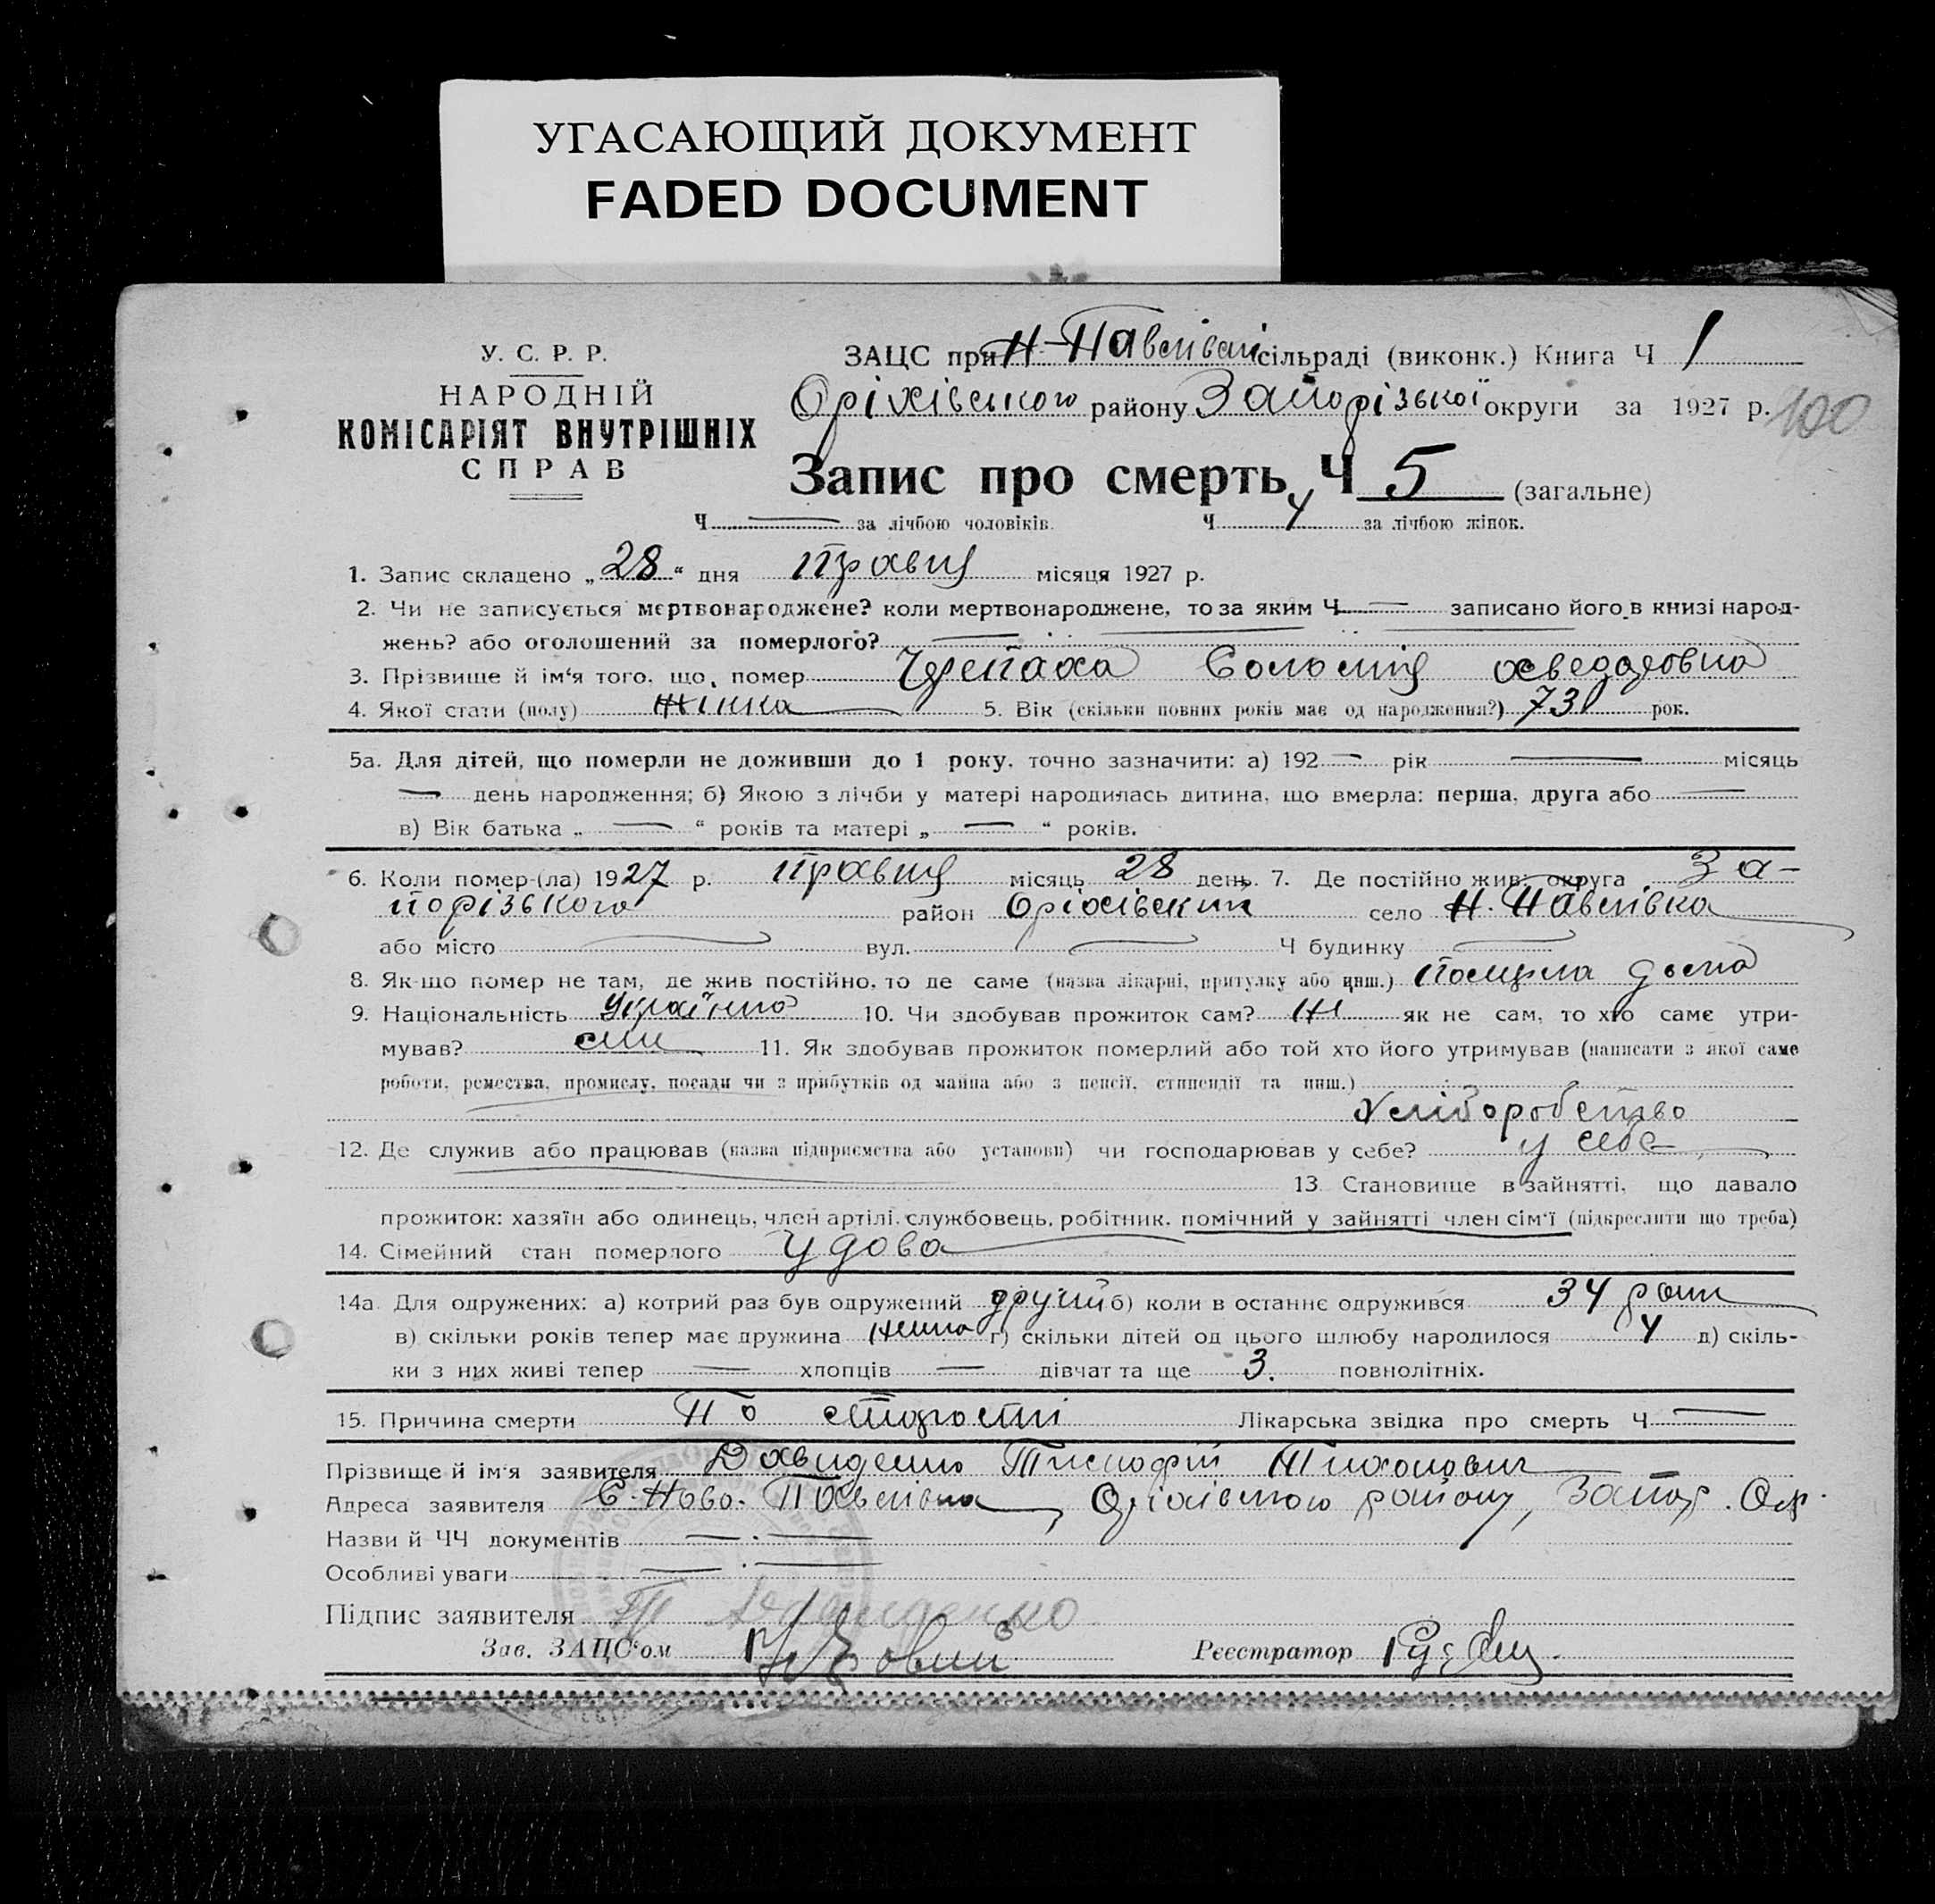 УГАСАЮЩИЙ ДОКУМЕНТ
FADED DOCUMENT
У. С. Р. Р.
НАРОДНІЙ
КОМІСАРІЯТ ВНУТРІШНІХ
СПРАВ
ЗАЦС при Н-Павлівській сільраді (виконк.) Книга Ч 1
Оріхівського району Запорізької округи за 1927 р. 100
Запис про смерть Ч 5 (загальне)
Ч — за лічбою чоловіків. Ч 4 за лічбою жінок.
1. Запис складено „28“ дня травня місяця 1927 р.
2. Чи не записується мертвонароджене? коли мертвонароджене, то за яким Ч — записано його в книзі народ-
жень? або оголошений за померлого? —
3. Прізвище й ім‘я того, що помер Черепаха Соломія
4. Якої стати (полу) Жінка 5. Вік (скільки повних років має од народження?) 73 рок.
5а. Для дітей, що померли не доживши до 1 року, точно зазначити: а) 192 — рік — місяць
— день народження; б) Якою з лічби у матері народилась дитина, що вмерла: перша, друга або —
в) Вік батька „ — “ років та матері „ — “ років.
6. Коли помер-(ла) 1927 р. травня місяць 28 день. 7. Де постійно жив: округа За-
порізького район Оріхівский село Н. Павлівка
або місто — вул. — Ч будинку —
8. Як-що помер не там, де жив постійно, то де саме (назва лікарні, притулку або инш.) померла дома
9. Національність Українка 10. Чи здобував прожиток сам? Ні як не сам, то хто саме утри-
мував? син 11. Як здобував прожиток померлий або той хто його утримував (написати з якої саме
роботи, ремества, промислу, посади чи з прибутків од майна або з пенсії, стипендії та инш.)
Хліборобство
12. Де служив або працював (назва підприємства або установи) чи господарював у себе? у себе
13. Становище в зайнятті, що давало
прожиток: хазяїн або одинець, член артілі, службовець, робітник, помічний у зайнятті член сім‘ї (підкреслити що треба)
14. Сімейний стан померлого удова
14а. Для одружених: а) котрий раз був одружений другий б) коли в останнє одружився 34 роки
в) скільки років тепер має дружина нема г) скільки дітей од цього шлюбу народилося 4 д) скіль-
ки з них живі тепер — хлопців — дівчат та ще 3. повнолітніх.
15. Причина смерти По старости Лікарська звідка про смерть Ч —
Прізвище й ім‘я заявителя Давиденко Тимофій Тихонович
Адреса заявителя С. Ново-Павлівка, Оріхівського району, Запор. Окр.
Назви й ЧЧ документів —
Особливі уваги —
Підпис заявителя Т Давиденко
Зав. ЗАЦС‘ом
Реєстратор